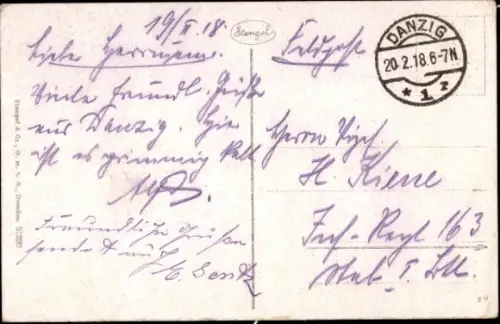 19/II 18.
Liebe Herrmann.
Viele freundl. Grüße
aus Danzig. Hie
ist es grimmig kalt
Freundliche Grüße
sendet auch
Stengel
Feldpost
DANZIG
20.2.18.6-7N
* 1 r
Herrn Vizef
H. Kiene
Inf-Regt 163
Stab I. Btl.
Stengel & Co., G. m. b. H., Dresden.